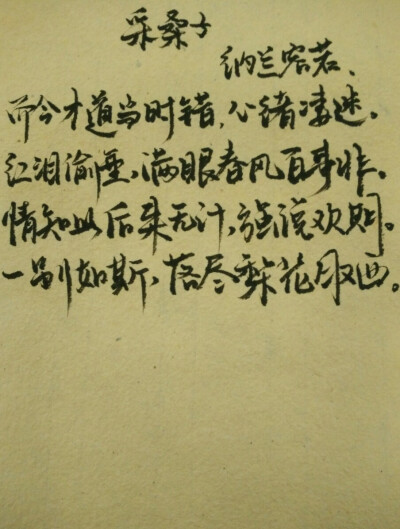 采桑子
纳兰容若、
而今才道当时错,心绪凄迷。
红泪偷垂,满眼春风百事非。
情知此后来无计,强说欢期。
一别如斯,落尽梨花月又西。